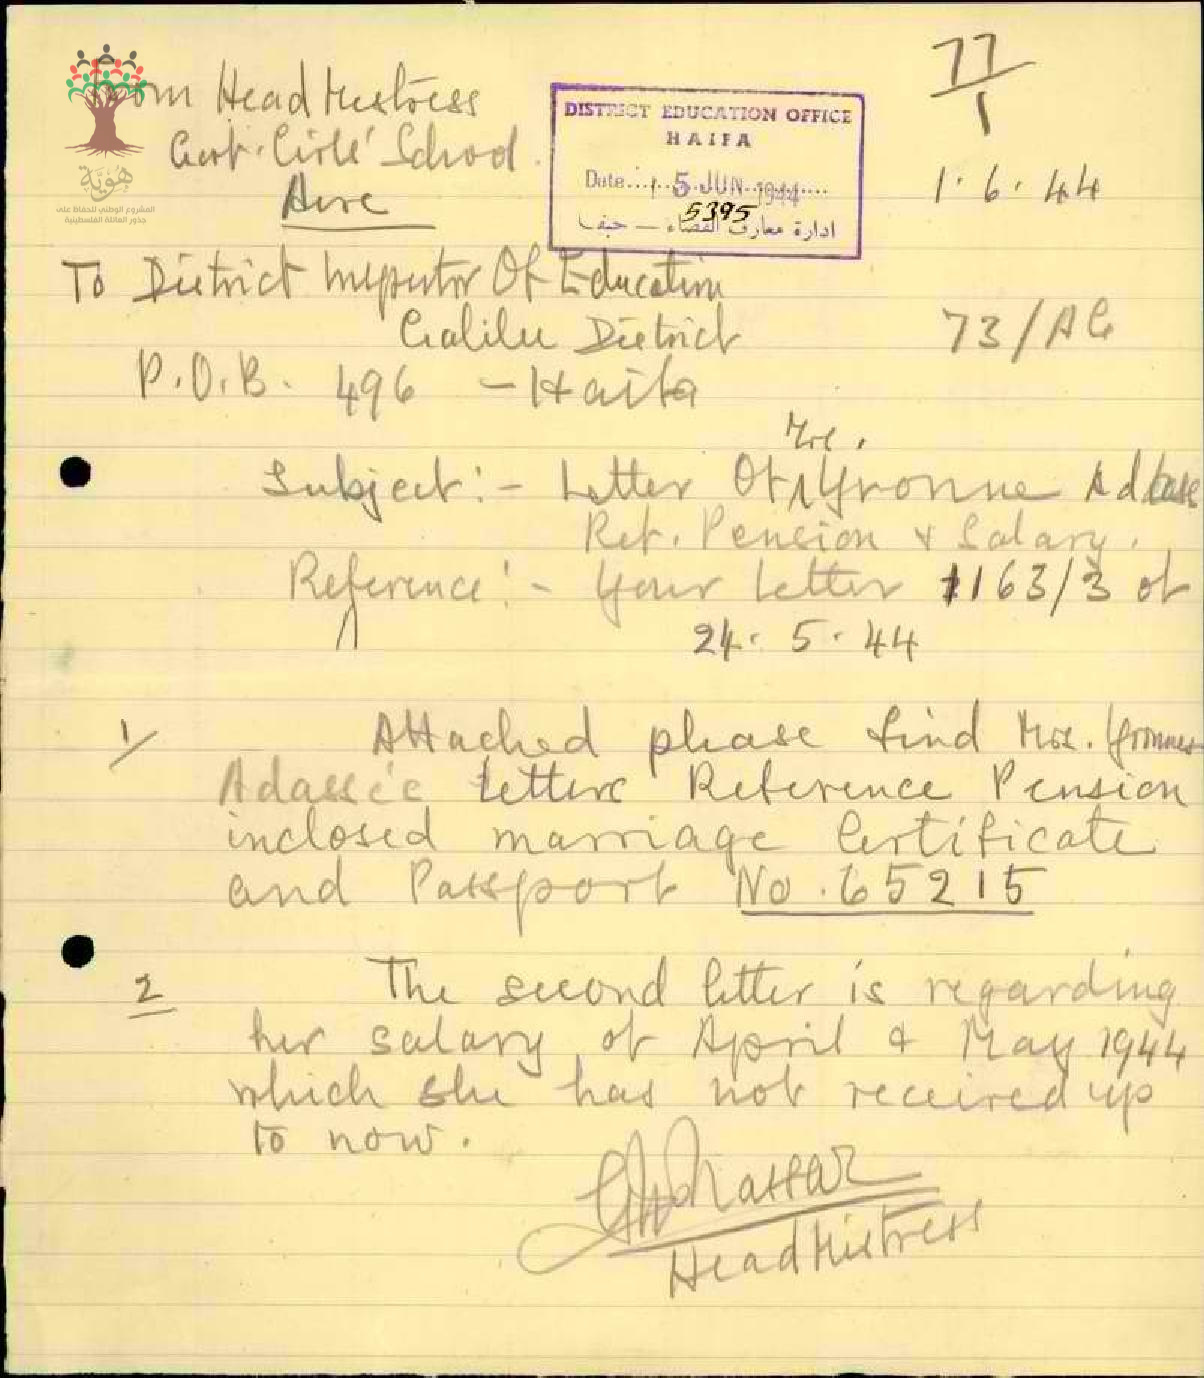 77/1
From Head Mistress
Govt. Girls' School
Acre
DISTRICT EDUCATION OFFICE
HAIFA
Date.... 5 JUN 1944
5395
ادارة معارف القضاء — حيفا
1.6.44
هوية
المشروع الوطني للحفاظ على
جذور العائلة الفلسطينية
To District Inspector Of Education
Galilee District
73/AG
P.O.B. 496 - Haifa
Mrs.
Subject:- Letter Of Yvonne
Ref. Pension & Salary.
Reference:- Your Letter 1163/3 of
24.5.44
1/ Attached please find Mrs. Yvonne
Letters Reference Pension
inclosed marriage Certificate
and Passport No. 65215
2 The second letter is regarding
her salary of April & May 1944
which she has not received up
to now.
Nassar
Head Mistress